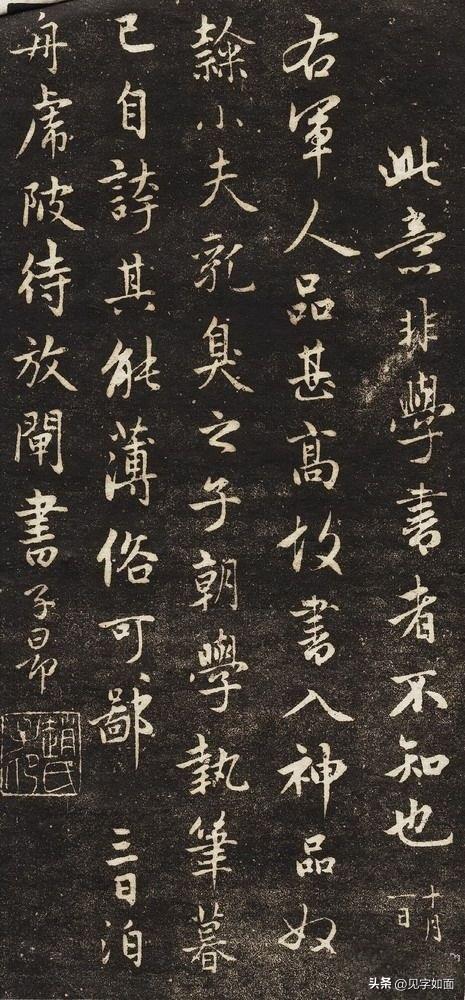 此意非學書者不知也十月一日
右軍人品甚高故書入神品奴
隸小夫乳臭之子朝學執筆暮
已自誇其能薄俗可鄙三日泊
舟虖陂待放閘書子昂
趙氏子印
头条 @见字如面